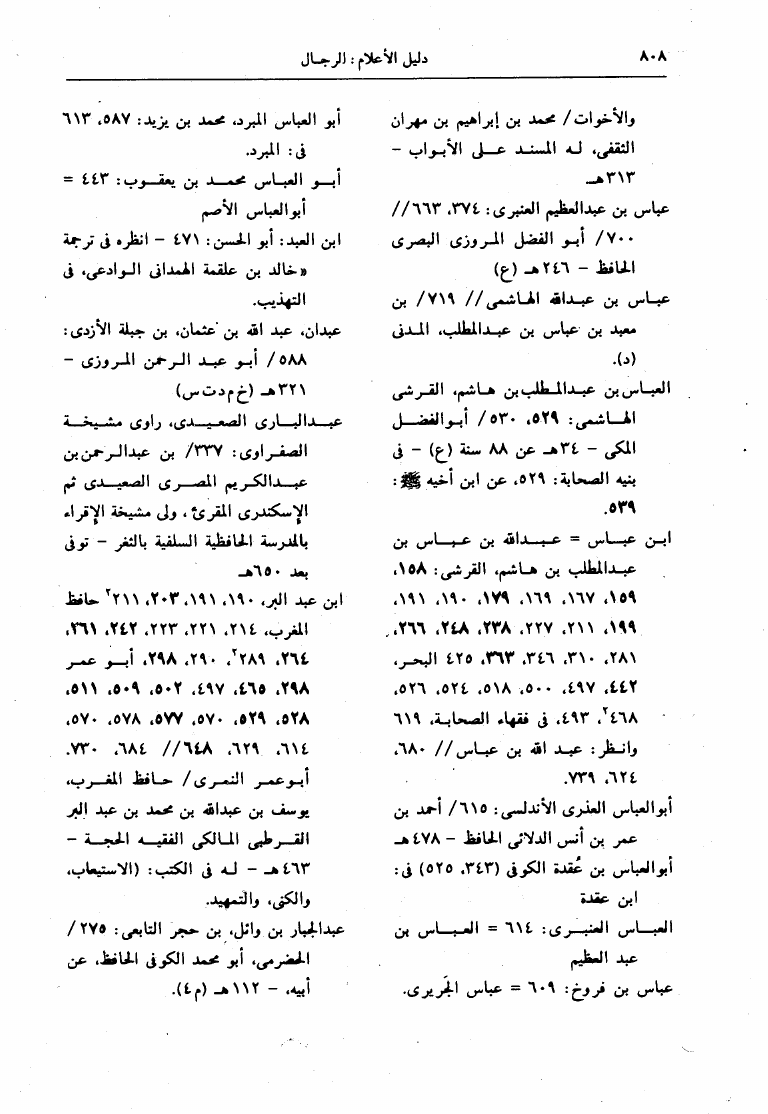 ٨٠٨
دليل الأعلام : الرجال
والأخوات / محمد بن إبراهيم بن مهران
الثقفى، له المسند على الأبواب –
٣١٣هـ
عباس بن عبدالعظيم العنبرى: ٣٧٤، ٦٦٣//
٧٠٠/ أبو الفضل المروزى البصرى
الحافظ – ٢٤٦ هـ (ع)
عباس بن عبدالله الهاشمى// ٧١٩/ بن
معبد بن عباس بن عبدالمطلب، المدنى
(د).
العباس بن عبدالمطلب بن هاشم، القرشى
الهاشمى: ٥٢٩، ٥٣٠/ أبوالفضل
المكى – ٣٤هـ عن ٨٨ سنة (ع) – فى
بنيه الصحابة: ٥٢٩، عن ابن أخيه ﷺ:
٥٣٩.
ابن عباس = عبدالله بن عباس بن
عبدالمطلب بن هاشم، القرشى: ١٥٨،
١٥٩، ١٦٧، ١٦٩، ١٧٩، ١٩٠، ١٩١،
١٩٩، ٢١١، ٢٢٧، ٢٣٨، ٢٤٨، ٢٦٦،
٢٨١، ٣١٠، ٣٤٦، ٣٦٣، ٤٢٥ البحر،
٤٤٢، ٤٩٧، ٥٠٠، ٥١٨، ٥٢٤، ٥٢٦،
٤٦٨٢، ٤٩٣، فى فقهاء الصحابة، ٦١٩
وانظر: عبد الله بن عباس// ٦٨٠،
٦٢٤، ٧٣٩.
أبوالعباس العذرى الأندلسى: ٦١٥/ أحمد بن
عمر بن أنس الدلائى الحافظ – ٤٧٨هـ
أبوالعباس بن عُقدة الكوفى (٣٤٣، ٥٢٥) فى:
ابن عقدة
العباس العنبرى: ٦١٤ = العباس بن
عبد العظيم
عباس بن فروخ: ٦٠٩ = عباس الجَريرى.
أبو العباس المبرد، محمد بن يزيد: ٥٨٧، ٦١٣
فى: المبرد.
أبو العباس محمد بن يعقوب: ٤٤٣ =
أبوالعباس الأصم
ابن العبد: أبو الحسن: ٤٧١ – انظره فى ترجمة
«خالد بن علقمة الهمدانى الوادعى، فى
التهذيب.
عبدان، عبد الله بن عثمان، بن جبلة الأزدى:
٥٨٨/ أبو عبد الرحمن المروزى –
٣٢١هـ (خ م د ت س)
عبدالبارى الصعيدى، راوى مشيخة
الصفراوى: ٣٣٧/ بن عبدالرحمن بن
عبدالكريم المصرى الصعيدى ثم
الإسكندرى المقرئ، ولى مشيخة الإقراء
بالمدرسة الحافظية السلفية بالثغر – توفى
بعد ٦٥٠هـ
ابن عبد البر، ١٩٠، ١٩١، ٢٠٣، ٢١١٢ حافظ
المغرب، ٢١٤، ٢٢١، ٢٢٣، ٢٤٢، ٢٦١،
٢٦٤، ٢٨٩٢، ٢٩٠، ٢٩٨، أبو عمر
٢٩٨، ٤٦٥، ٤٩٧، ٥٠٢، ٥٠٩، ٥١١،
٥٢٨، ٥٢٩، ٥٧٠، ٥٧٧، ٥٧٨، ٥٧٠،
٦١٤، ٦٢٩، ٦٤٨// ٦٨٤، ٧٣٠.
أبوعمر النمرى/ حافظ المغرب،
يوسف بن عبدالله بن محمد بن عبد البر
القرطبى المالكى الفقيه الحجة –
٤٦٣هـ – له فى الكتب: (الاستيعاب،
والكنى، والتمهيد.
عبدالجبار بن وائل، بن حجر التابعى: ٢٧٥/
الحضرمى، أبو محمد الكوفى الحافظ، عن
أبيه، – ١١٢هـ (م٤).